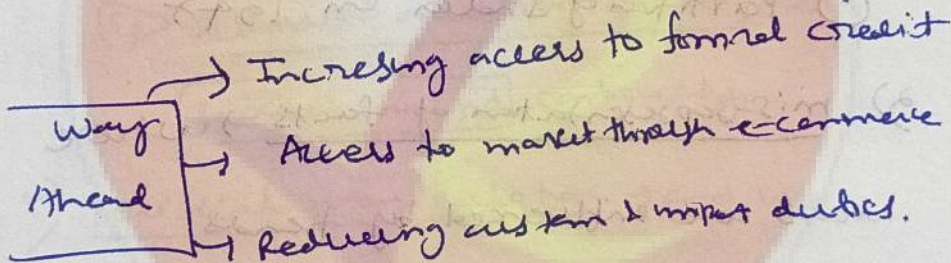 → Incresing access to formal credit
Way
→ Access to market through e-commerce
Ahead
→ Reducing custom & import duties.